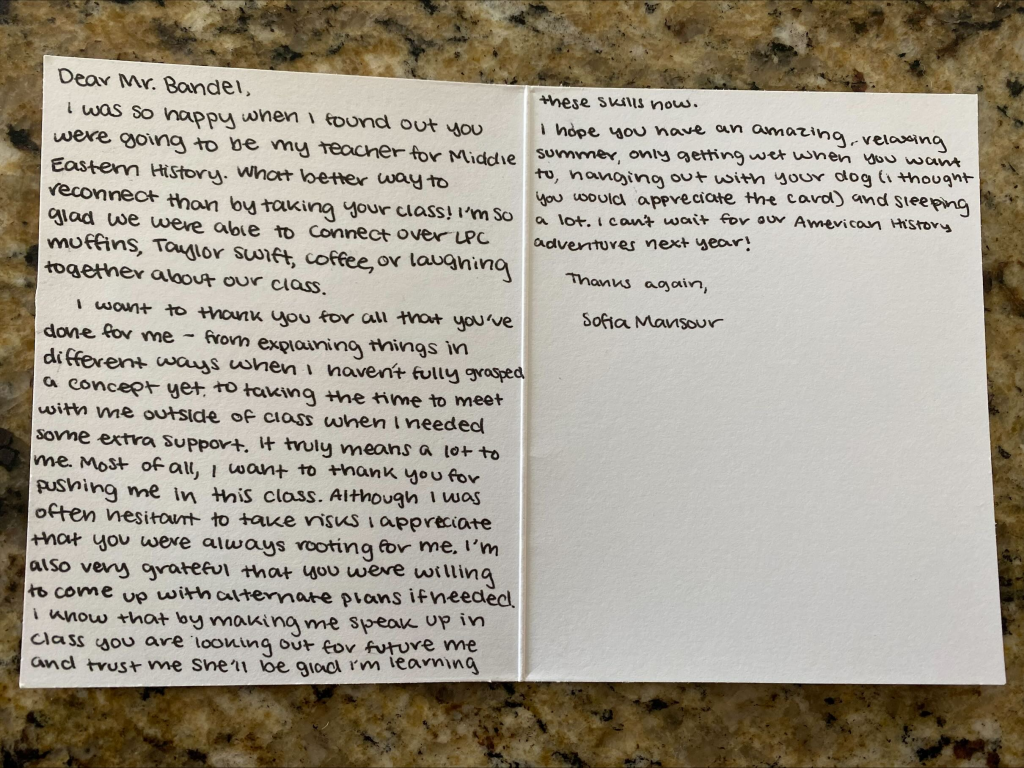 Dear Mr. Bandel,
I was so happy when I found out you
were going to be my teacher for Middle
Eastern History. What better way to
reconnect than by taking your class! I'm so
glad we were able to connect over LPC
muffins, Taylor Swift, coffee, or laughing
together about our class.
I want to thank you for all that you've
done for me - from explaining things in
different ways when I haven't fully grasped
a concept yet, to taking the time to meet
with me outside of class when I needed
some extra support. It truly means a lot to
me. Most of all, I want to thank you for
pushing me in this class. Although I was
often hesitant to take risks I appreciate
that you were always rooting for me. I'm
also very grateful that you were willing
to come up with alternate plans if needed.
I know that by making me speak up in
class you are looking out for future me
and trust me she'll be glad I'm learning
these skills now.
I hope you have an amazing, relaxing
summer, only getting wet when you want
to, hanging out with your dog (i thought
you would appreciate the card) and sleeping
a lot. I can't wait for our American History
adventures next year!
Thanks again,
Sofia Mansour